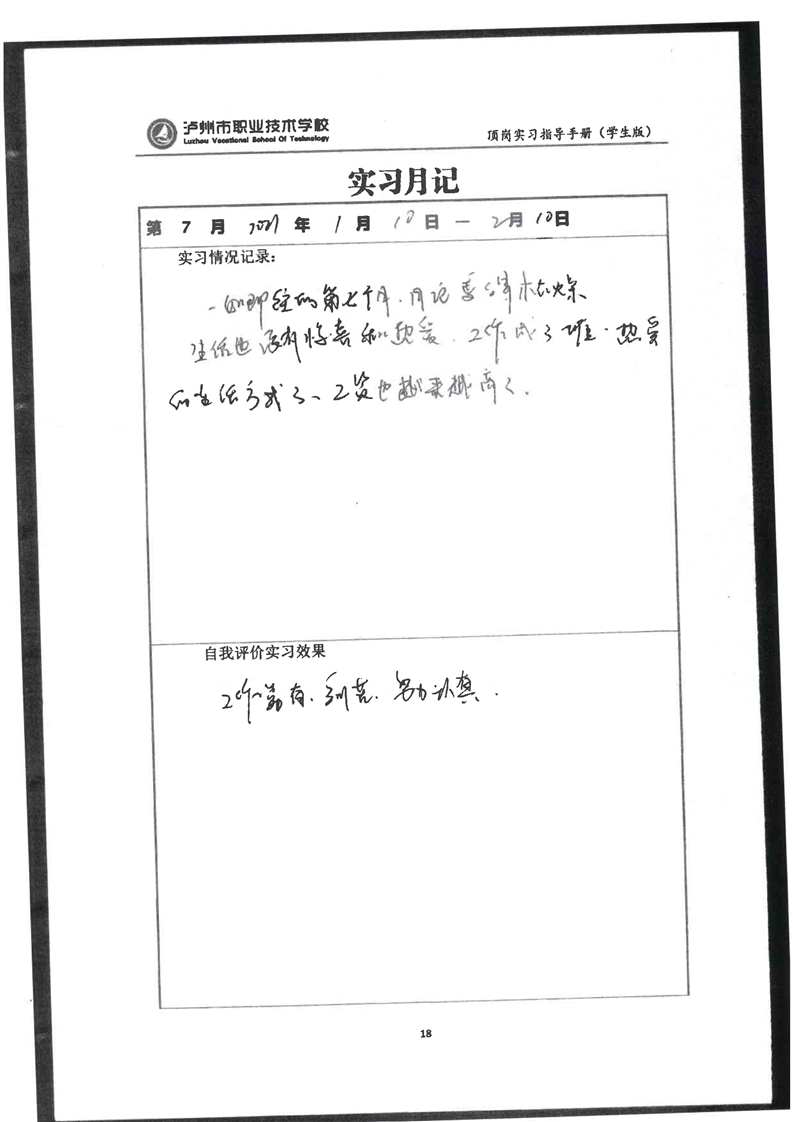 泸州市职业技术学校
Luzhou Vocational School Of Technology
顶岗实习指导手册（学生版）
实习月记
第 7 月 2021 年 1 月 10 日 — 2月 10日
实习情况记录：
的第七个月、枯燥
生活也没有惊喜和热爱、工作成了唯一热爱
的生活方式了、工资也越来越高了.
自我评价实习效果
工作、刻苦、努力认真.
18